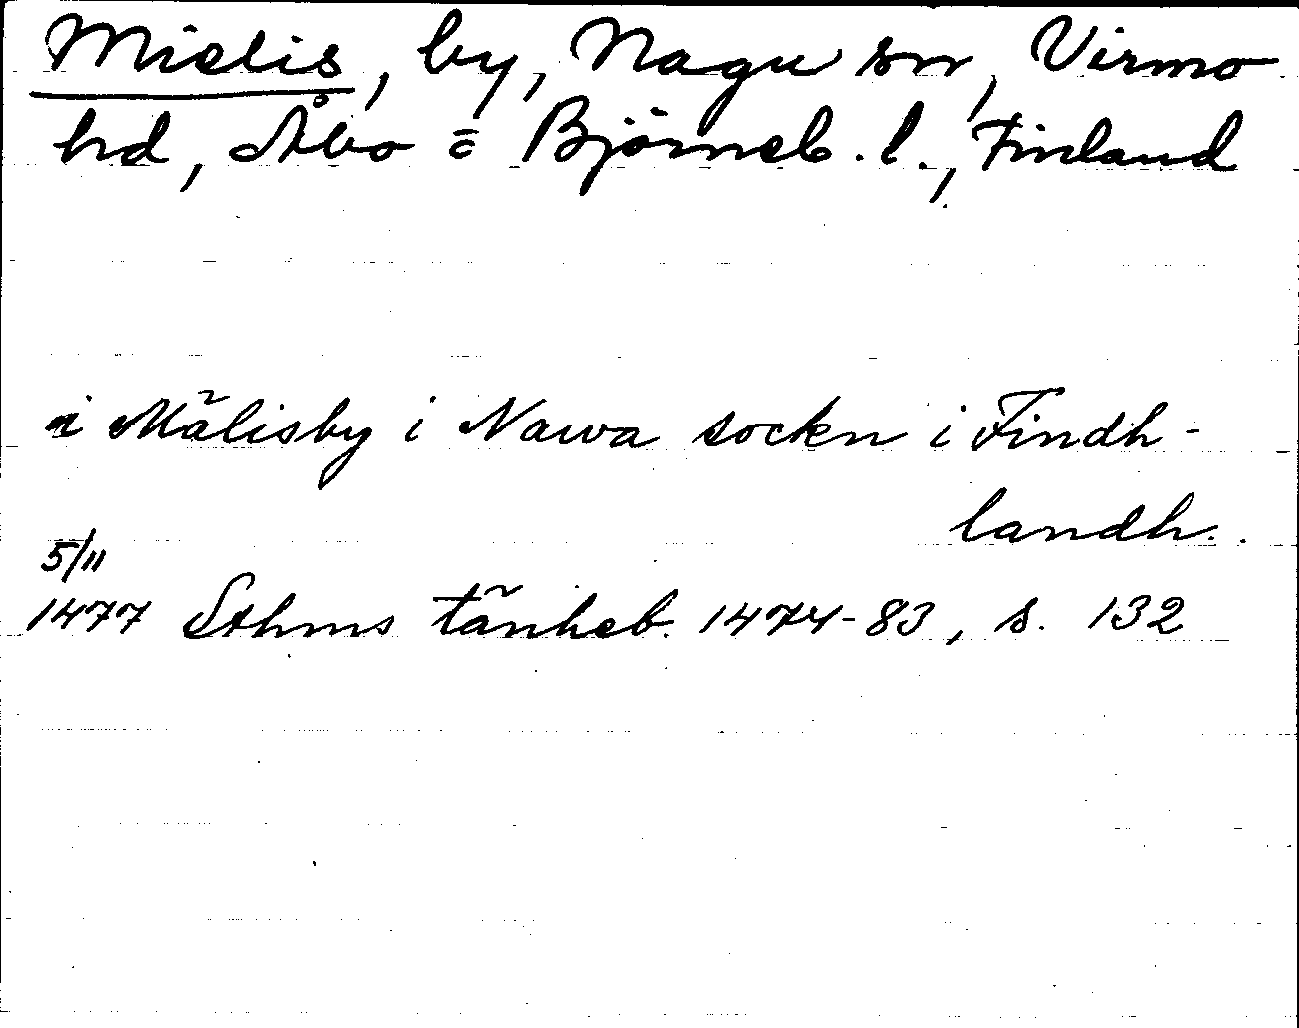 Mielis, by, Nagu sn, Virmo
hd, Åbo = Björneb. l., Finland
i Mälisby i Nawa sockn i Findh-
landh.
5/11
1477 Sthms tänkeb. 1474-83, s. 132